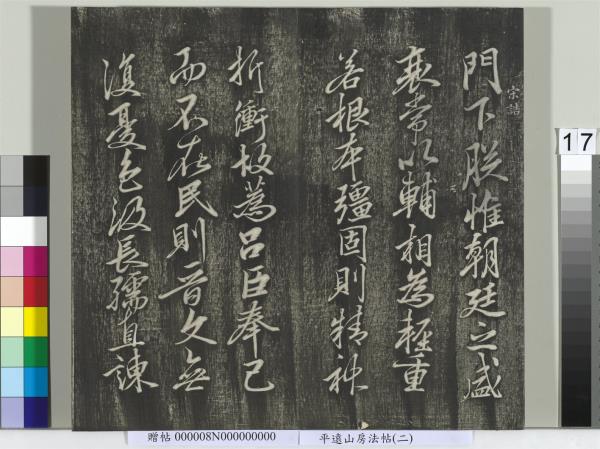 宋誥
門下朕惟朝廷之盛
衰常以輔相為輕重
若根本彊固則精神
折衝故蔿呂臣奉己
而不在民則晉文無
復憂色汲長孺直諫
17
贈帖 000008N000000000 平遠山房法帖(二)